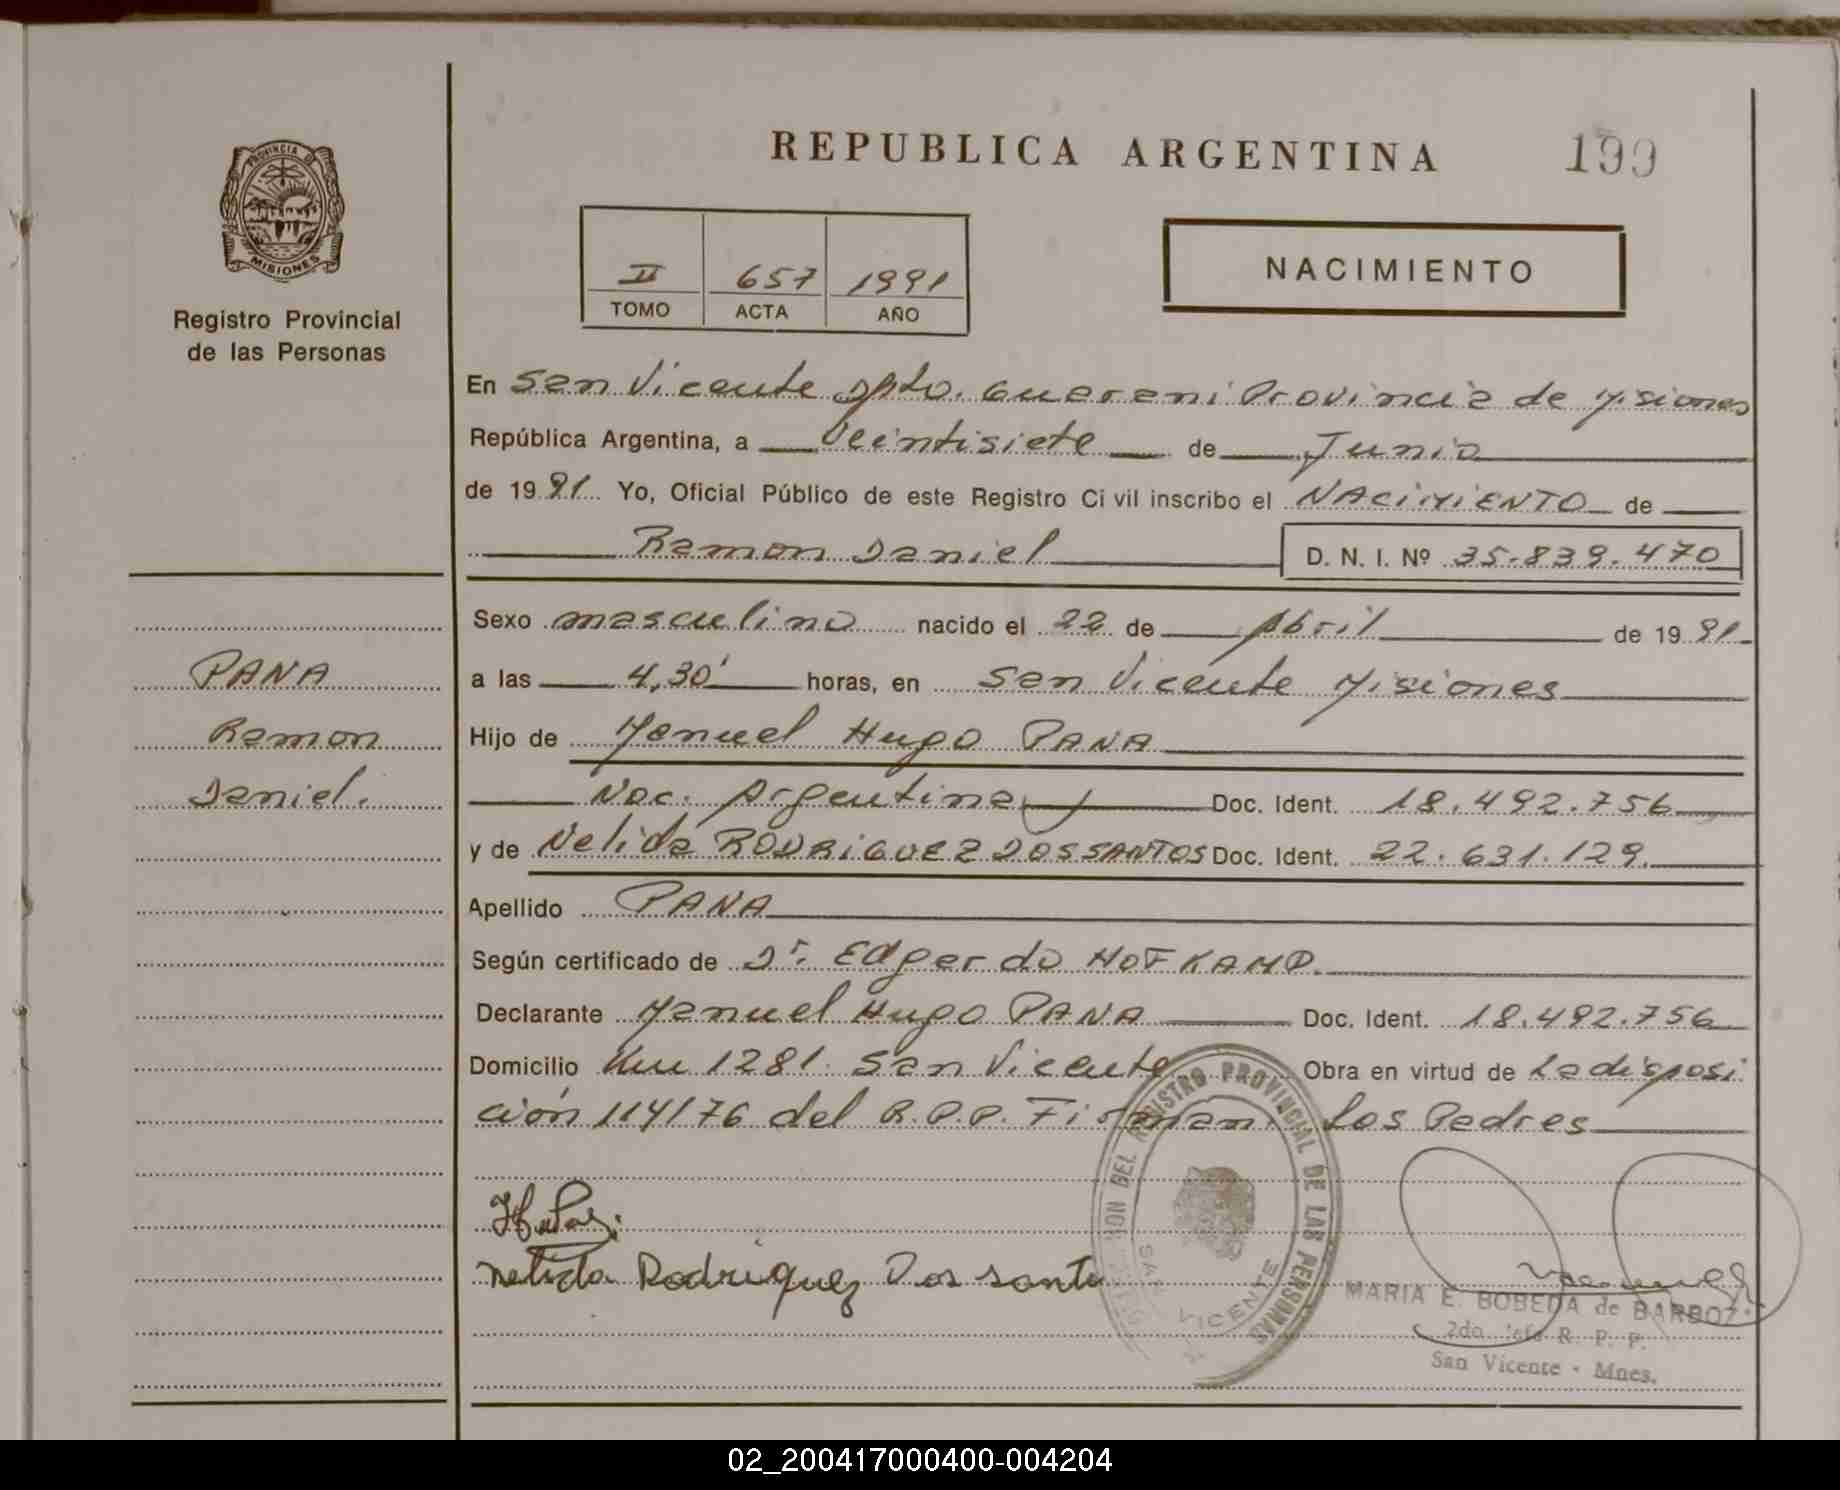 REPUBLICA ARGENTINA
199
PROVINCIA DE
MISIONES
Registro Provincial
de las Personas
II 657 1991
TOMO ACTA AÑO
NACIMIENTO
En San Vicente Dpto. Guarani Provincia de Misiones
República Argentina, a Veintisiete de Junio
de 1991 Yo, Oficial Público de este Registro Civil inscribo el NACIMIENTO de
Ramon Daniel D. N. I. Nº 35.839.470
Sexo masculino nacido el 22 de Abril de 1991
a las 4,30' horas, en San Vicente Misiones
Hijo de Manuel Hugo PANA
Nac. Argentina Doc. Ident. 18.492.756
y de Nelida RODRIGUEZ DOS SANTOS Doc. Ident. 22.631.129.
Apellido PANA
Según certificado de Dr. Edgardo HOFKAMP.
Declarante Manuel Hugo PANA Doc. Ident. 18.492.756
Domicilio Km 1281. San Vicente Obra en virtud de La disposi
ción 114/76 del R.P.P. Firman: Los Padres
PANA
Ramon
Daniel.
Nelida Rodriguez Dos santo
REGISTRO PROVINCIAL DE LAS PERSONAS
SAN VICENTE
MARIA E. BOBEDA de BARBOZ
2do. Jefe R. P. P.
San Vicente - Mnes.
02_200417000400-004204